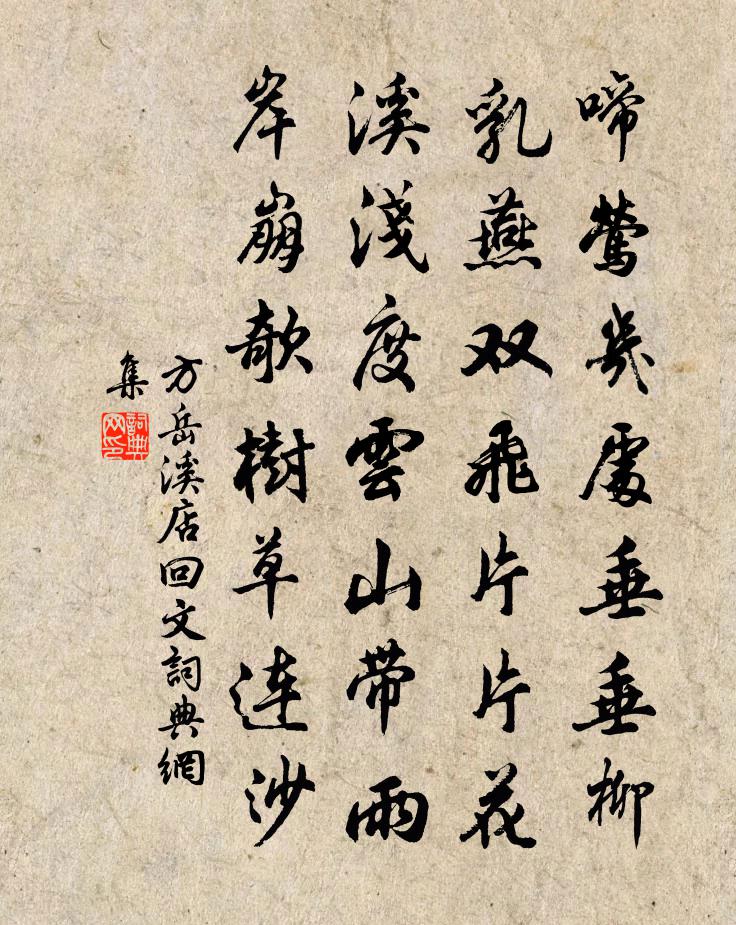 啼鶯幾處垂垂柳
乳燕双飛片片花
溪淺度雲山帶雨
岸崩欹樹草連沙
方岳溪店回文詞典網
集
詞典網印